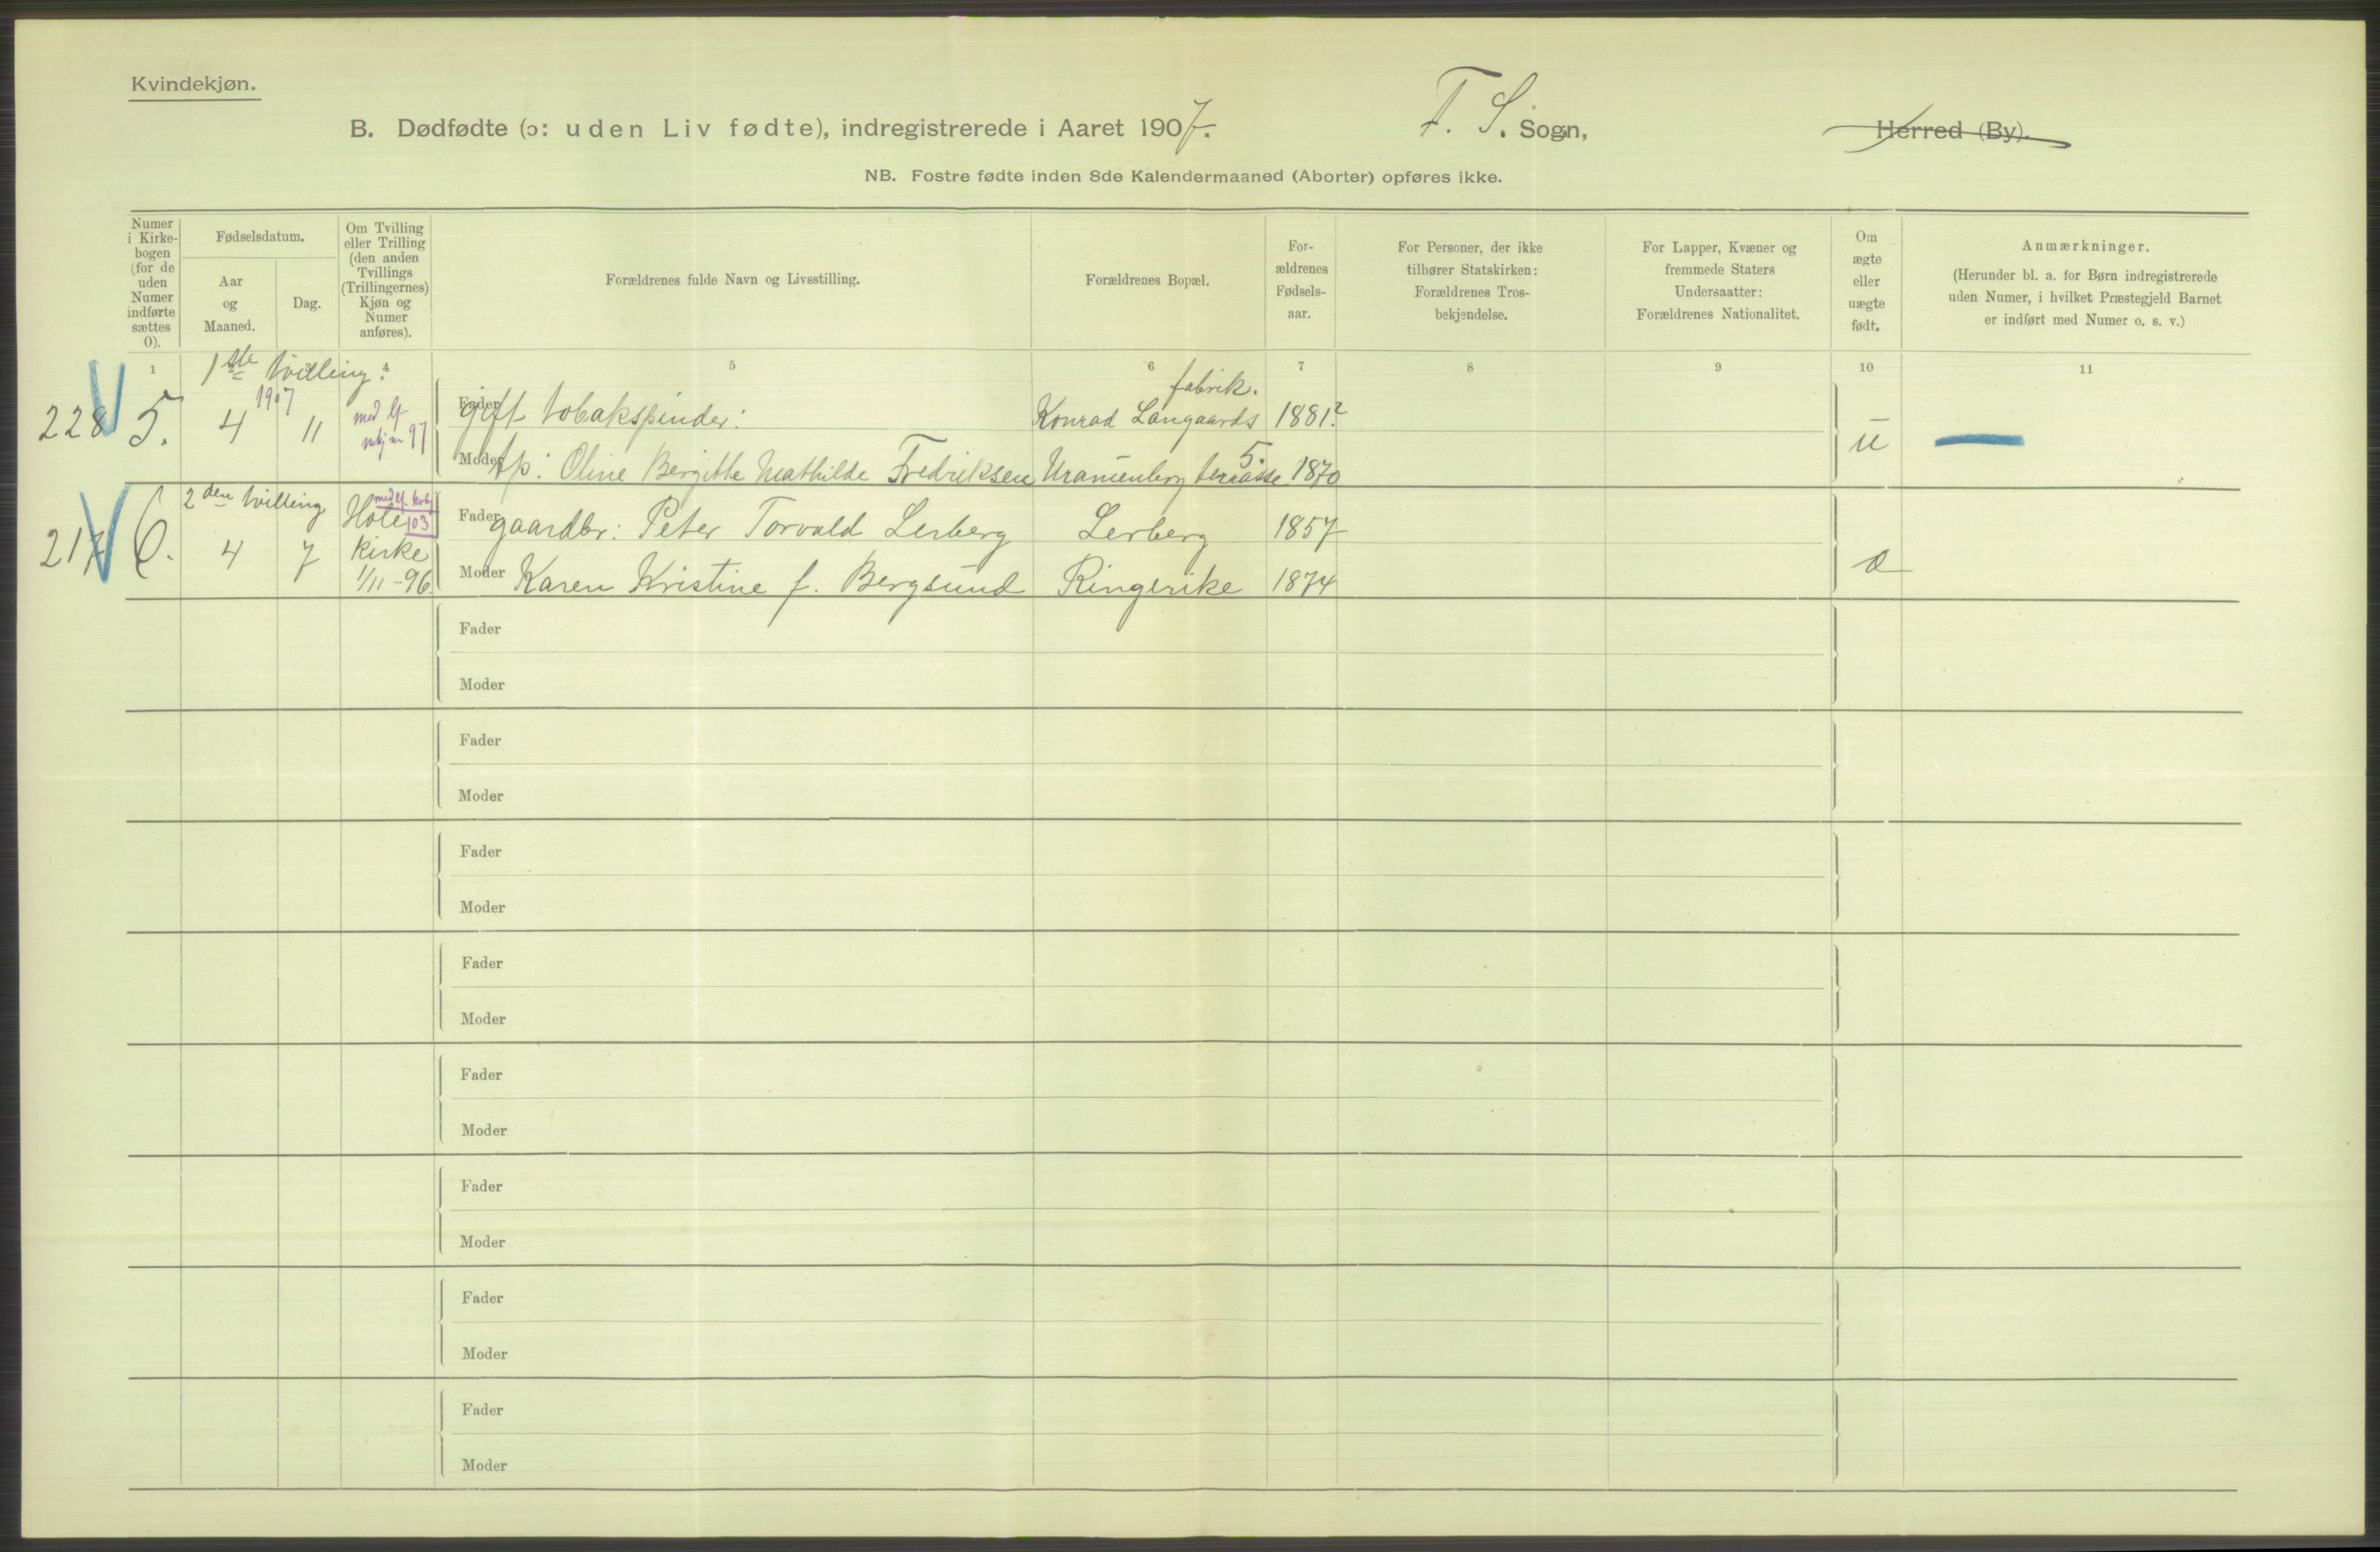 Kvindekjøn.
B. Dødfødte (ɔ: uden Liv fødte), indregistrerede i Aaret 1907. F. S. Sogn, Herred (By).
NB. Fostre fødte inden 8de Kalendermaaned (Aborter) opføres ikke.
Numer
i Kirke-
bogen
(for de
uden
Numer
indførte
sættes
0).
Fødselsdatum.
Aar
og
Maaned.
Dag.
Om Tvilling
eller Trilling
(den anden
Tvillings
(Trillingernes)
Kjøn og
Numer
anføres).
Forældrenes fulde Navn og Livsstilling.
Forældrenes Bopæl.
For-
ældrenes
Fødsels-
aar.
For Personer, der ikke
tilhører Statskirken:
Forældrenes Tros-
bekjendelse.
For Lapper, Kvæner og
fremmede Staters
Undersaatter:
Forældrenes Nationalitet.
Om
ægte
eller
uægte
født.
Anmærkninger.
(Herunder bl. a. for Børn indregistrerede
uden Numer, i hvilket Præstegjeld Barnet
er indført med Numer o. s. v.)
1 4 5 6 7 8 9 10 11
1ste tvilling:
1907
228 5. 4 11
med lf
mkj nr 97
Fader gift tobakspinder:
fabrik.
Konrad Langaards 1881?
Moder tp: Oline Bergitte Mathilde Fredriksen
5.
Uranienberg terrasse 1870
u
2den tvilling
217 6. 4 7
med lf.
103
Hole
kirke
1/11-96.
Fader gaardbr: Peter Torvald Lerberg Lerberg 1857
Moder Karen Kristine f. Bergsund Ringerike 1874
Fader
Moder
Fader
Moder
Fader
Moder
Fader
Moder
Fader
Moder
Fader
Moder
Fader
Moder
Fader
Moder